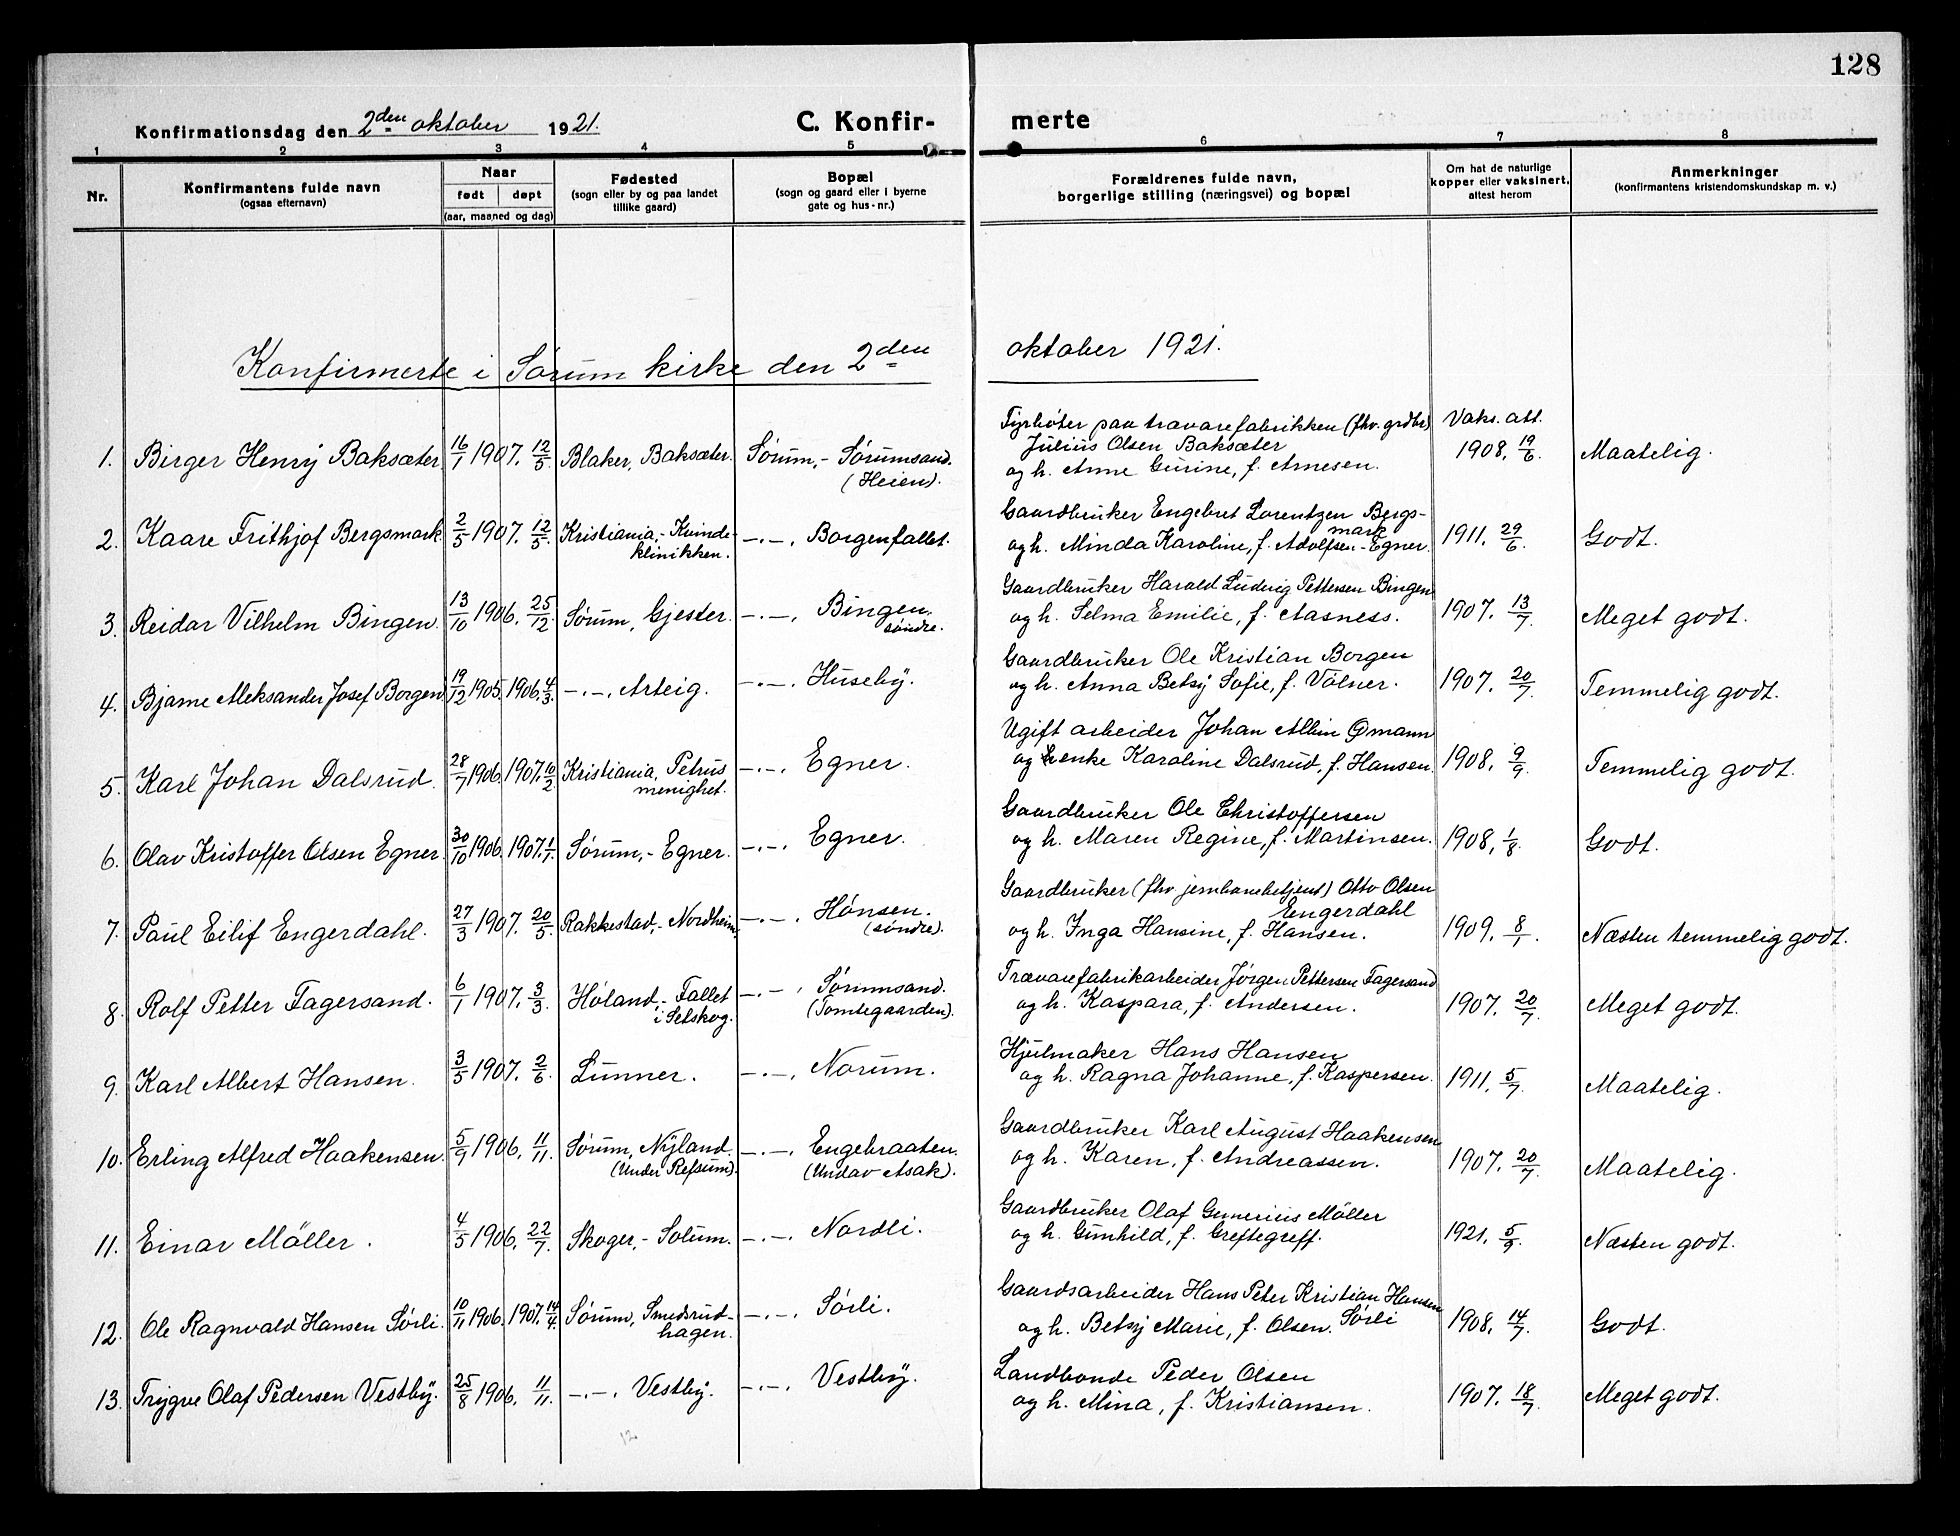 128
Konfirmationsdag den 2den oktober 1921.
C. Konfirmerte
1 2 3 4 5 6 7 8
Nr.
Konfirmantens fulde navn
(ogsaa efternavn)
Naar
født døpt
(aar, maaned og dag)
Fødested
(sogn eller by og paa landet
tillike gaard)
Bopæl
(sogn og gaard eller i byerne
gate og hus-nr.)
Forældrenes fulde navn,
borgerlige stilling (næringsvei) og bopæl
Om hat de naturlige
kopper eller vaksinert,
attest herom
Anmerkninger
(konfirmantens kristendomskundskap m. v.)
Konfirmerte i Sørum kirke den 2den oktober 1921.
Fyrbøter paa trævarefabrikken (fhv. grdbr) Vaks. att.
1. Birger Henry Baksæter 16/1 1907. 12/5 Blaker, Baksæter. Sørum,- Sørumsand. Julius Olsen Baksæter 1908, 19/6 Maatelig.
(Heien). og h. Anne Gurine, f. Arnesen.
Gaardbruker Engebret Lorentzen Bergs-
mark
2. Kaare Frithjof Bergsmark 2/5 1907. 12/5 Kristiania,- Kvinde- -.-, Borgenfallet. og h. Minda Karoline, f. Adolfsen-Egner. 1911, 29/6. Godt.
klinikken.
Gaardbruker Harald Ludvig Pettersen Bingen
3. Reidar Vilhelm Bingen. 13/10 1906. 25/12 Sørum, Gjester. -.-, Bingen. og h. Selma Emilie, f. Aasness. 1907, 13/7. Meget godt.
søndre.
Gaardbruker Ole Kristian Borgen
4. Bjarne Aleksander Josef Borgen 19/12 1905. 1906. 4/3. -.-, Arteig. -.-, Huseby. og h. Anna Betsy Sofie, f. Vølner. 1907, 20/7. Temmelig godt.
Ugift arbeider Johan Albin Ømann
5. Karl Johan Dalsrud. 28/7 1906. 1907. 10/2 Kristiania, Petrus -.-, Egner. og enke Karoline Dalsrud, f. Hansen. 1908, 9/9. Temmelig godt.
menighet.
Gaardbruker Ole Christoffersen
6. Olav Kristoffer Olsen Egner. 30/10 1906. 1907. 1/1. Sørum,- Egner. -.-, Egner. og h. Maren Regine, f. Martinsen. 1908, 1/8. Godt.
Gaardbruker (fhv jernbanebetjent) Otto Olsen
Engerdahl
7. Paul Eilif Engerdahl. 27/3 1907. 20/5 Rakkestad,- Nordheim, -.-, Hønsen. og h. Inga Hansine, f. Hansen. 1909. 8/1. Næsten temmelig godt.
(søndre).
Trævarefabrikarbeider Jørgen Pettersen Fagersand
8. Rolf Petter Fagersand. 6/1 1907. 3/3. Høland,- Fallet -.-, Sørumsand. og h. Kaspara, f. Andersen. 1907, 20/7 Meget godt.
i Setskog. (Tomtegaarden).
Hjulmaker Hans Hansen
9. Karl Albert Hansen. 3/5 1907. 2/6. Lunner. -.-, Norum. og h. Ragna Johanne, f. Kaspersen. 1911. 5/7. Maatelig.
Gaardbruker Karl August Haakensen
10. Erling Alfred Haakensen. 5/9 1906. 11/11. Sørum, Nyland. -.-, Engebraaten. og h. Karen, f. Andreassen. 1907, 20/7. Maatelig.
(Under Refsum). (Undav Asak).
Gaardbruker Olaf Gunerius Møller
11. Einar Møller. 4/5 1906. 22/7. Skoger,- Solum. -.-, Nordli. og h. Gunhild, f. Greftegreff. 1921. 5/9. Næsten godt.
Gaardsarbeider Hans Peter Kristian Hansen
12. Ole Ragnvald Hansen Sørli. 10/11 1906. 1907. 14/4. Sørum, Smedsrud- -.-, Sørli. og h. Betsy Marie, f. Olsen. Sørli 1908, 14/7. Godt.
hagen.
Landbonde Peder Olsen
13. Trygve Olaf Pedersen Vestby. 25/8 1906. 11/11. -.-, Vestby. -.-, Vestby. og h. Mina, f. Kristiansen. 1907, 18/7 Meget godt.
12